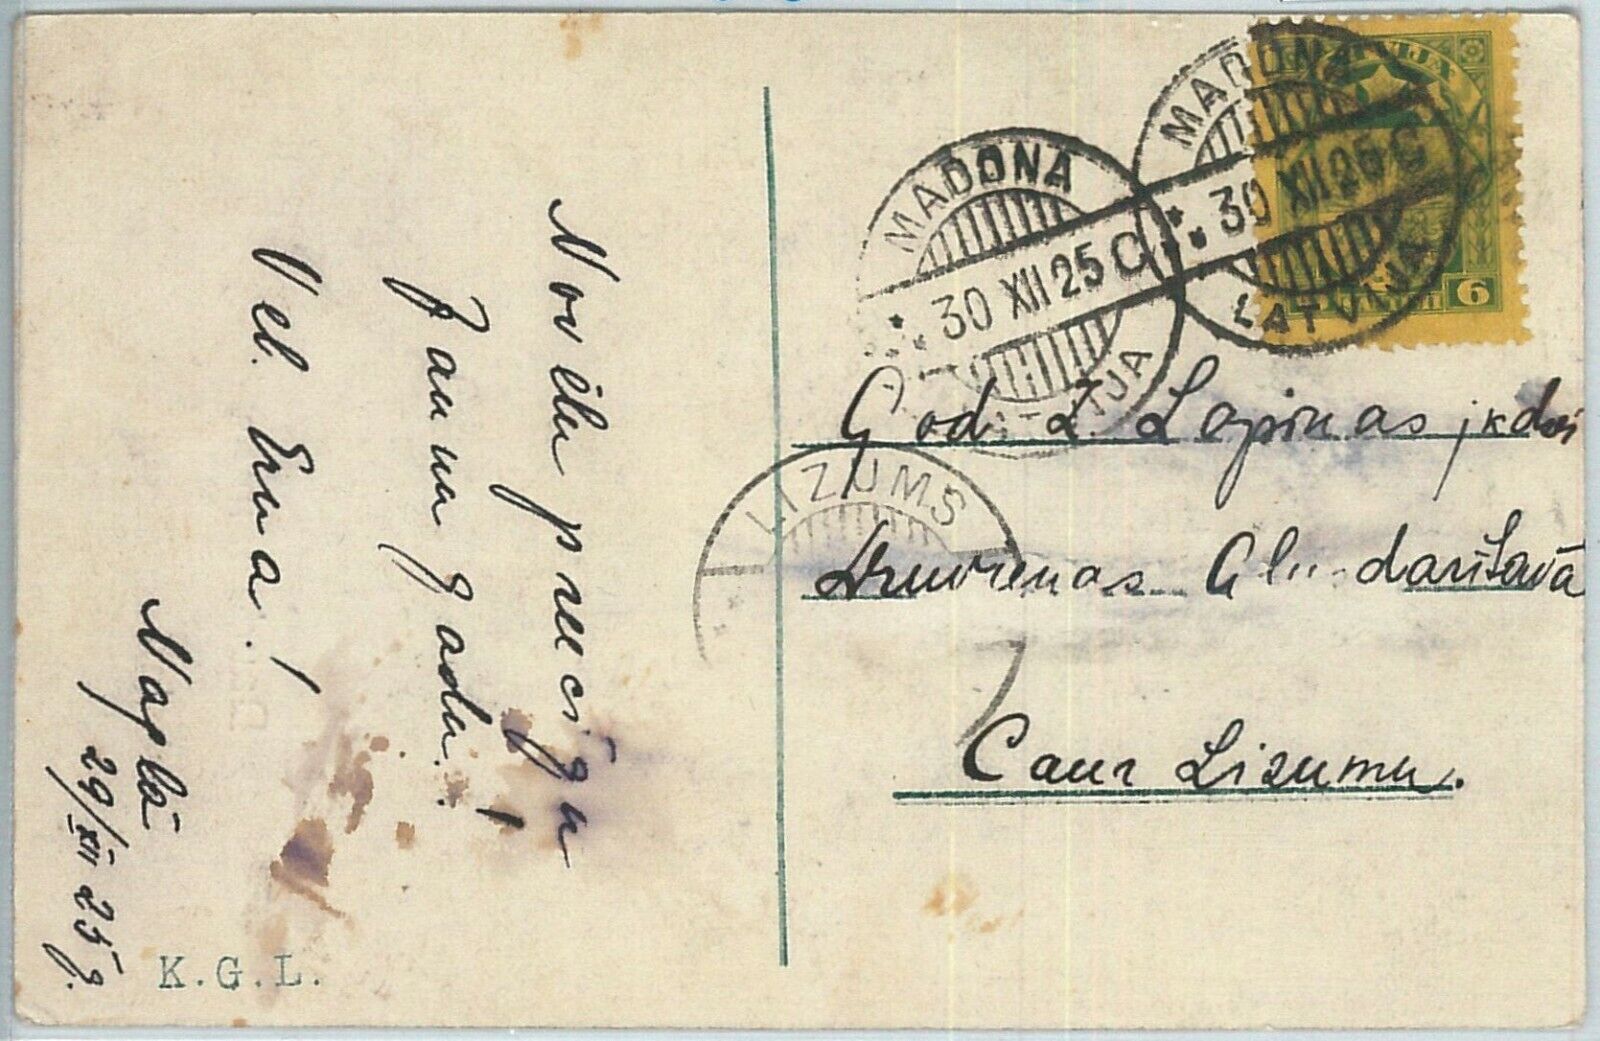 Novēlu priecīgu
Jaunu gadu!
Vel. Erna!
29/XII 25g.
K.G.L.
LATVIJA
6
MADONA
30 XII 25 C
LATVIJA
MADONA
30 XII 25 C
LATVIJA
LIZUMS
God. Z. Lapinas jkdzei
Druvienas
Caur Lizumu.